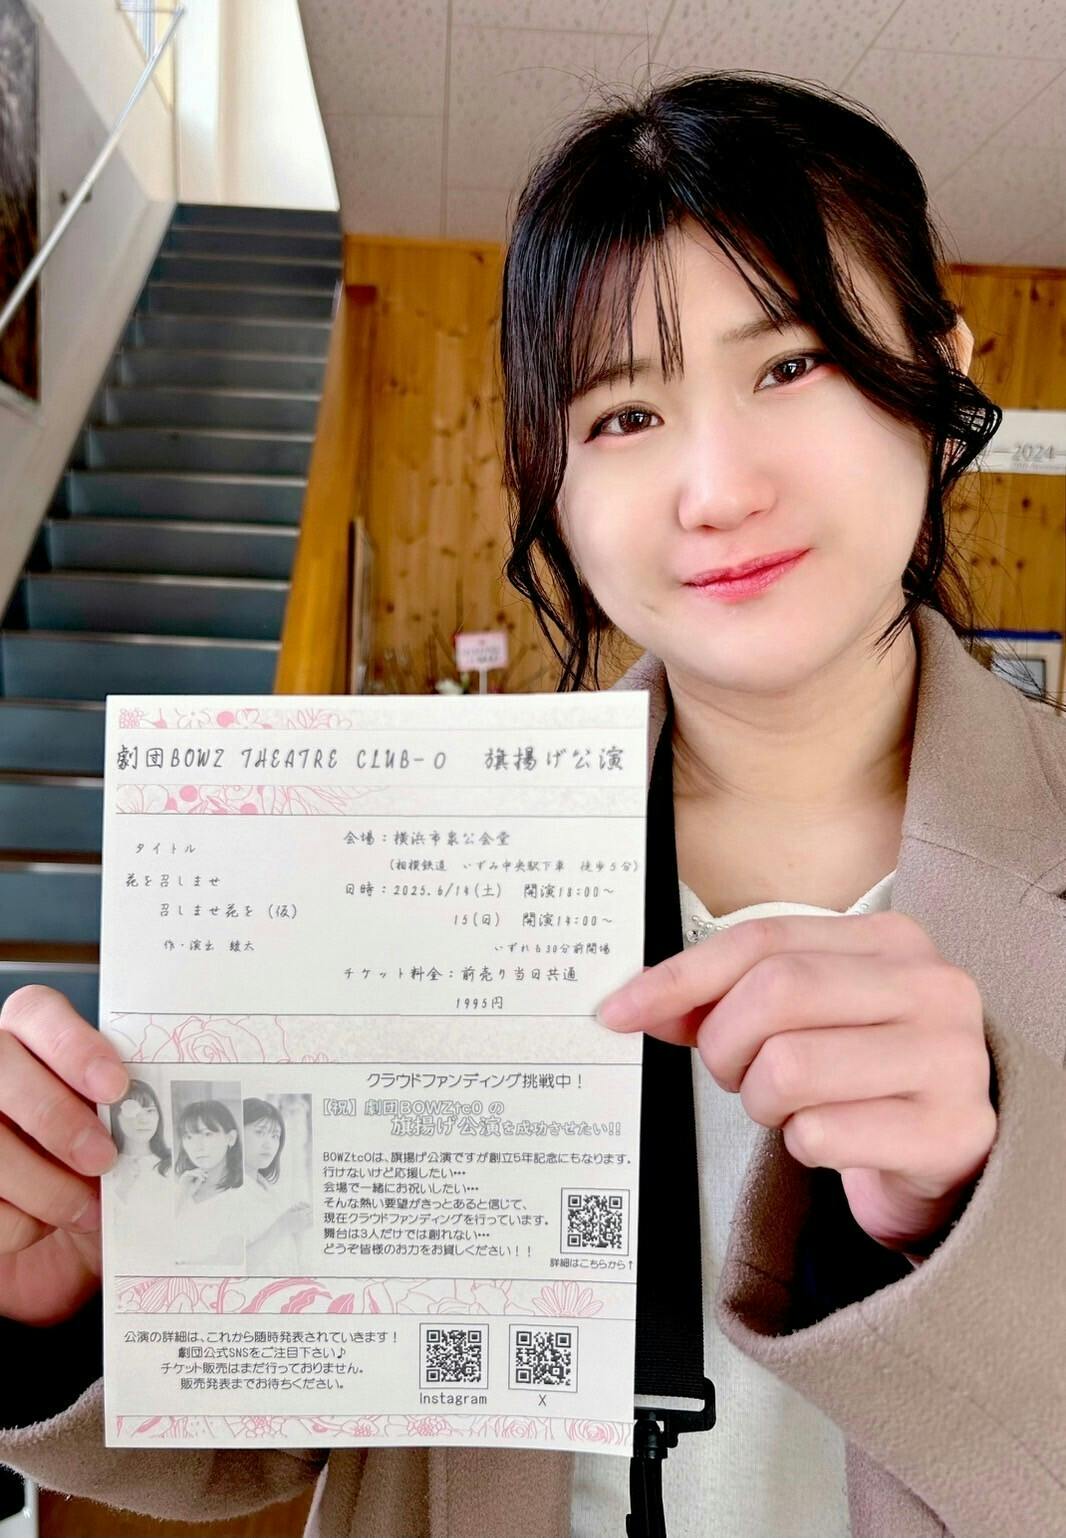 劇団BOWZ THEATRE CLUB-0　旗揚げ公演
タイトル
花を召しませ
召しませ花を（仮）
作・演出　綾太
会場：横浜市泉公会堂
（相模鉄道　いずみ中央駅下車　徒歩5分）
日時：2025.6/14(土)　開演18:00～
15(日)　開演14:00～
いずれも30分前開場
チケット料金：前売り当日共通
1995円
クラウドファンディング挑戦中！
【祝】劇団BOWZtc0の
旗揚げ公演を成功させたい!!
BOWZtc0は、旗揚げ公演ですが創立5年記念にもなります。
行けないけど応援したい…
会場で一緒にお祝いしたい…
そんな熱い要望がきっとあると信じて、
現在クラウドファンディングを行っています。
舞台は3人だけでは創れない…
どうぞ皆様のお力をお貸しください！！
詳細はこちらから↑
公演の詳細は、これから随時発表されていきます！
劇団公式SNSをご注目下さい♪
チケット販売はまだ行っておりません。
販売発表までお待ちください。
Instagram
X
2024